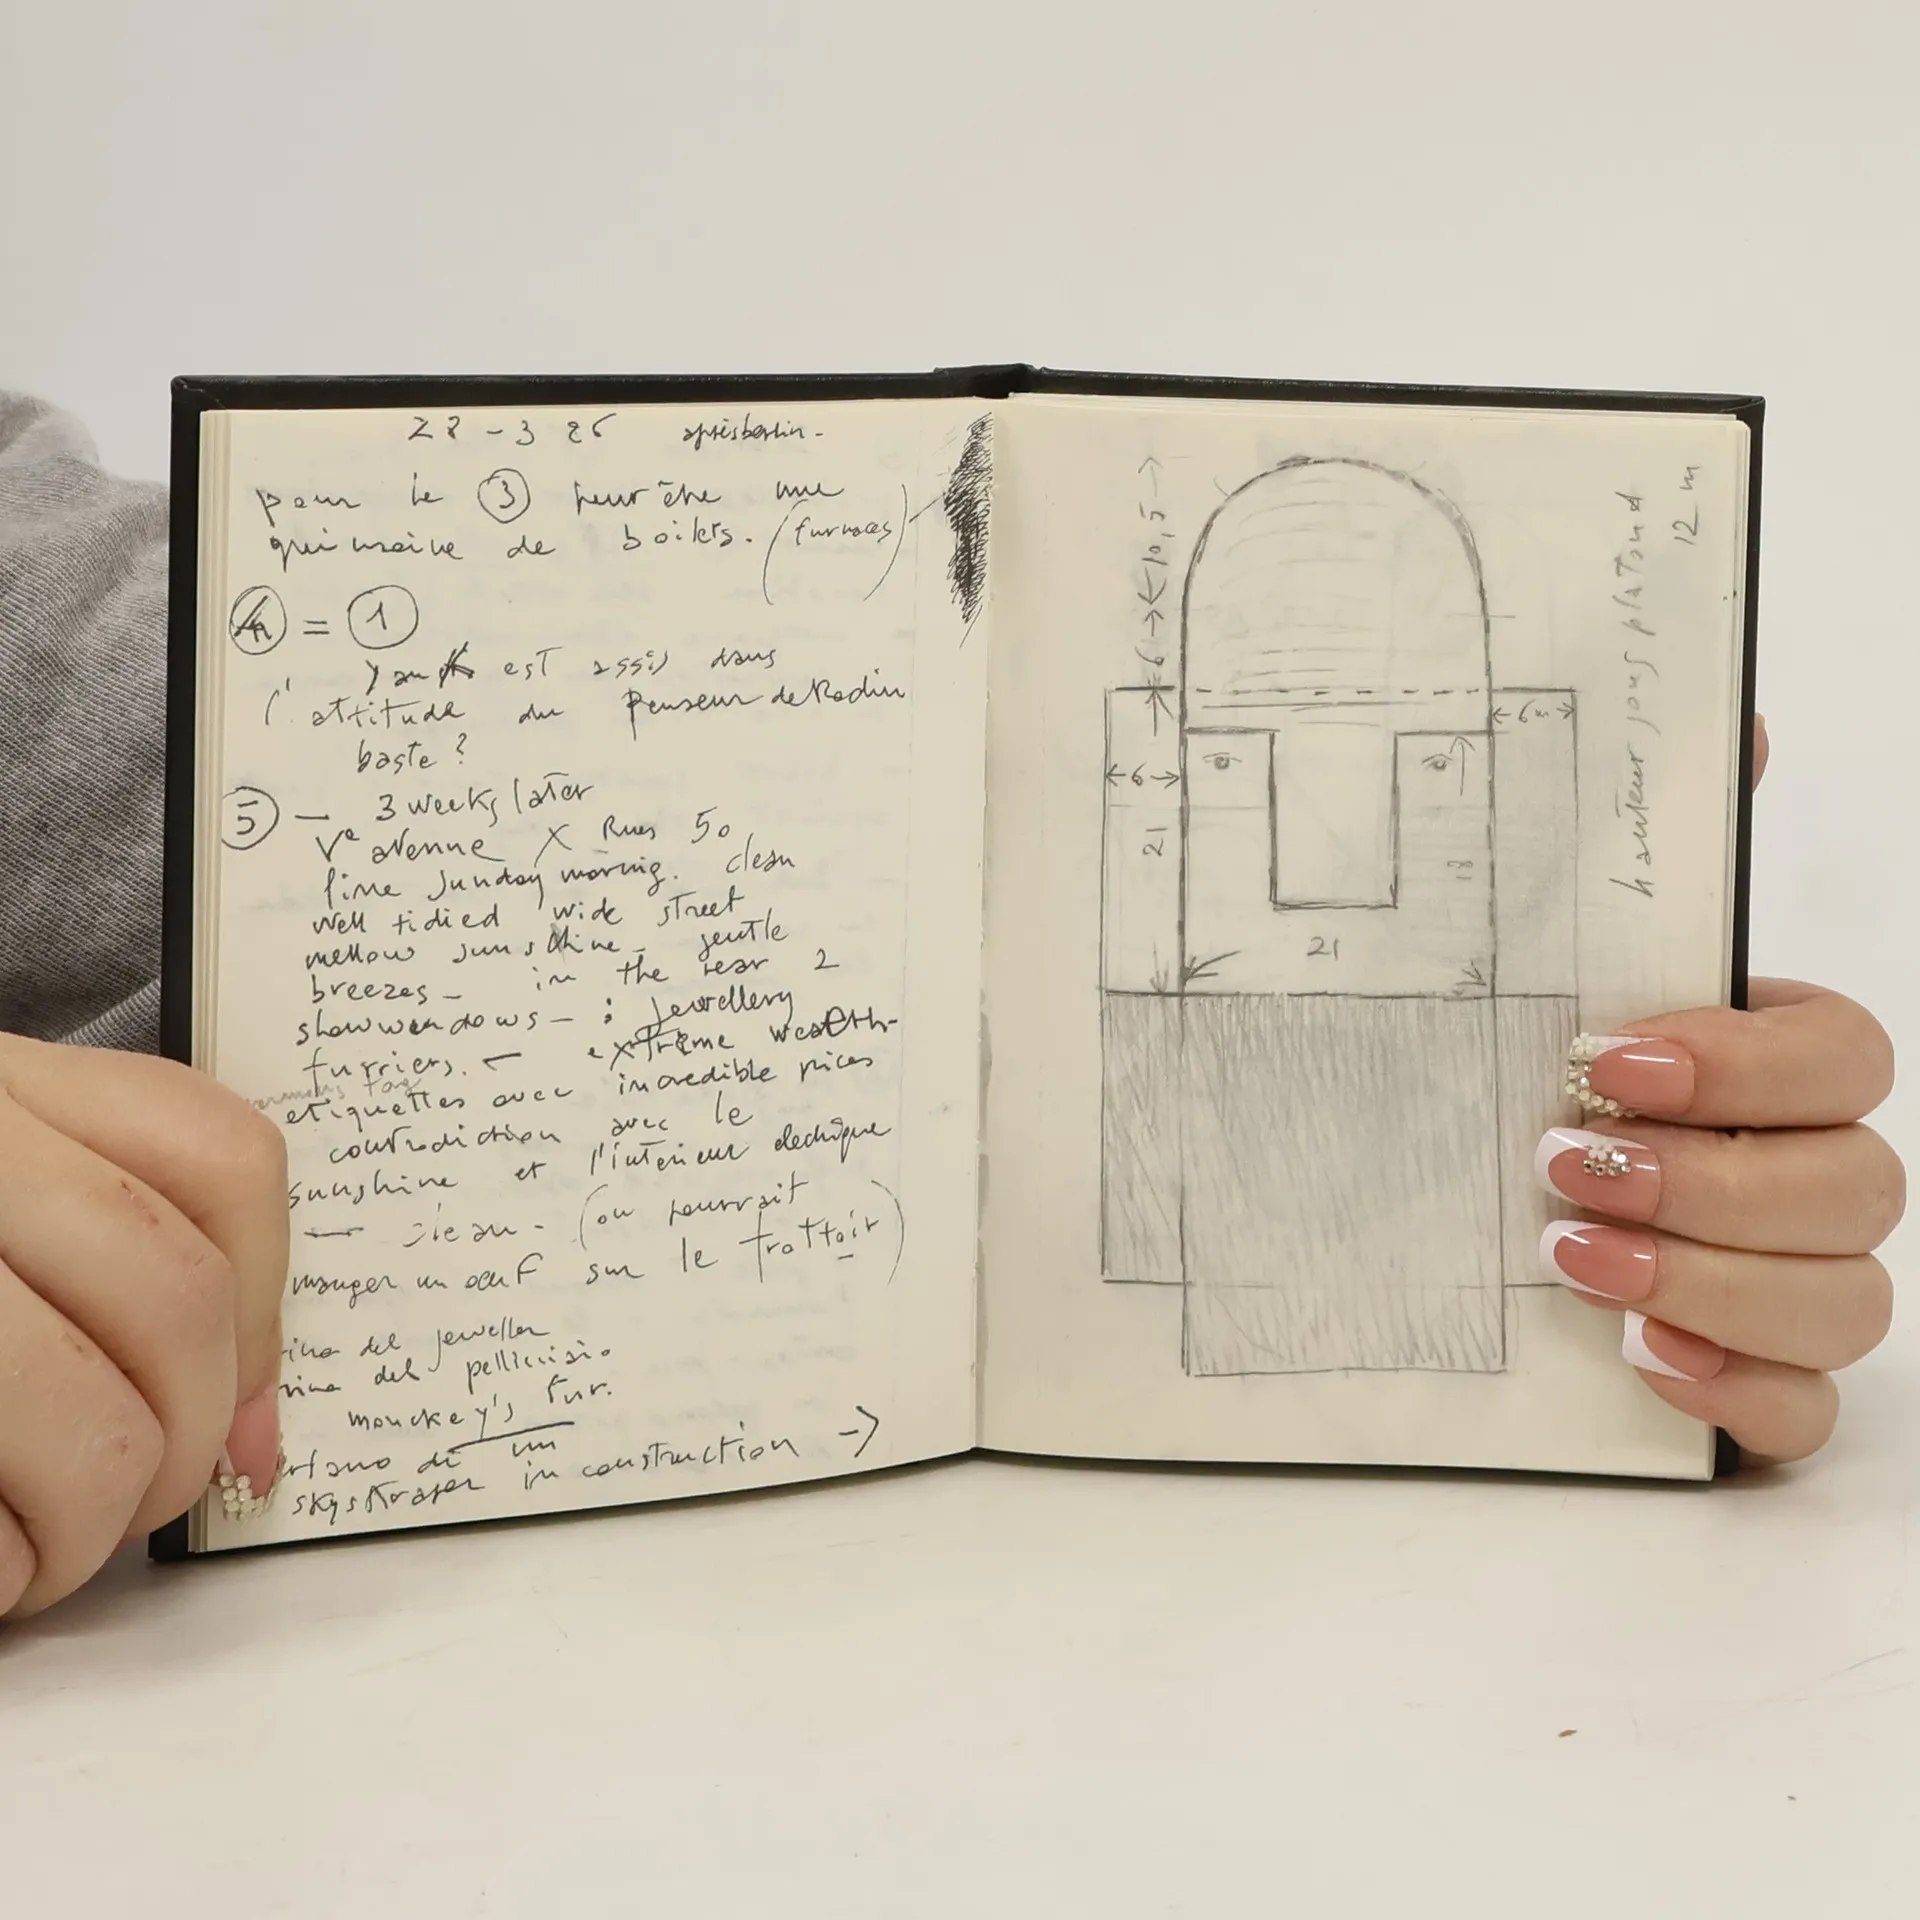 28 - 3 86 après berlin -
pour le 3 peut être une
quinzaine de boilers. (furnaces)
4 = 1
Yank est assis dans
l'attitude du Penseur de Rodin
baste ?
5 — 3 weeks later
Ve avenue X Rues 50
fine Sunday morning. clean
well tidied wide street
mellow sunshine - gentle
breezes - in the rear 2
showwindows - : Jewellery
furriers. — extreme wealth -
tag
etiquettes avec incredible prices
contradiction avec le
sunshine et l'interieur electrique
— (on pourrait
manger un œuf sur le trottoir)
del jeweller
del pellicciaio
monckey's fur.
di un
skyskraper in construction →
6 10,5
6 m
6
21
18
21
hauteur sous plafond
12 m